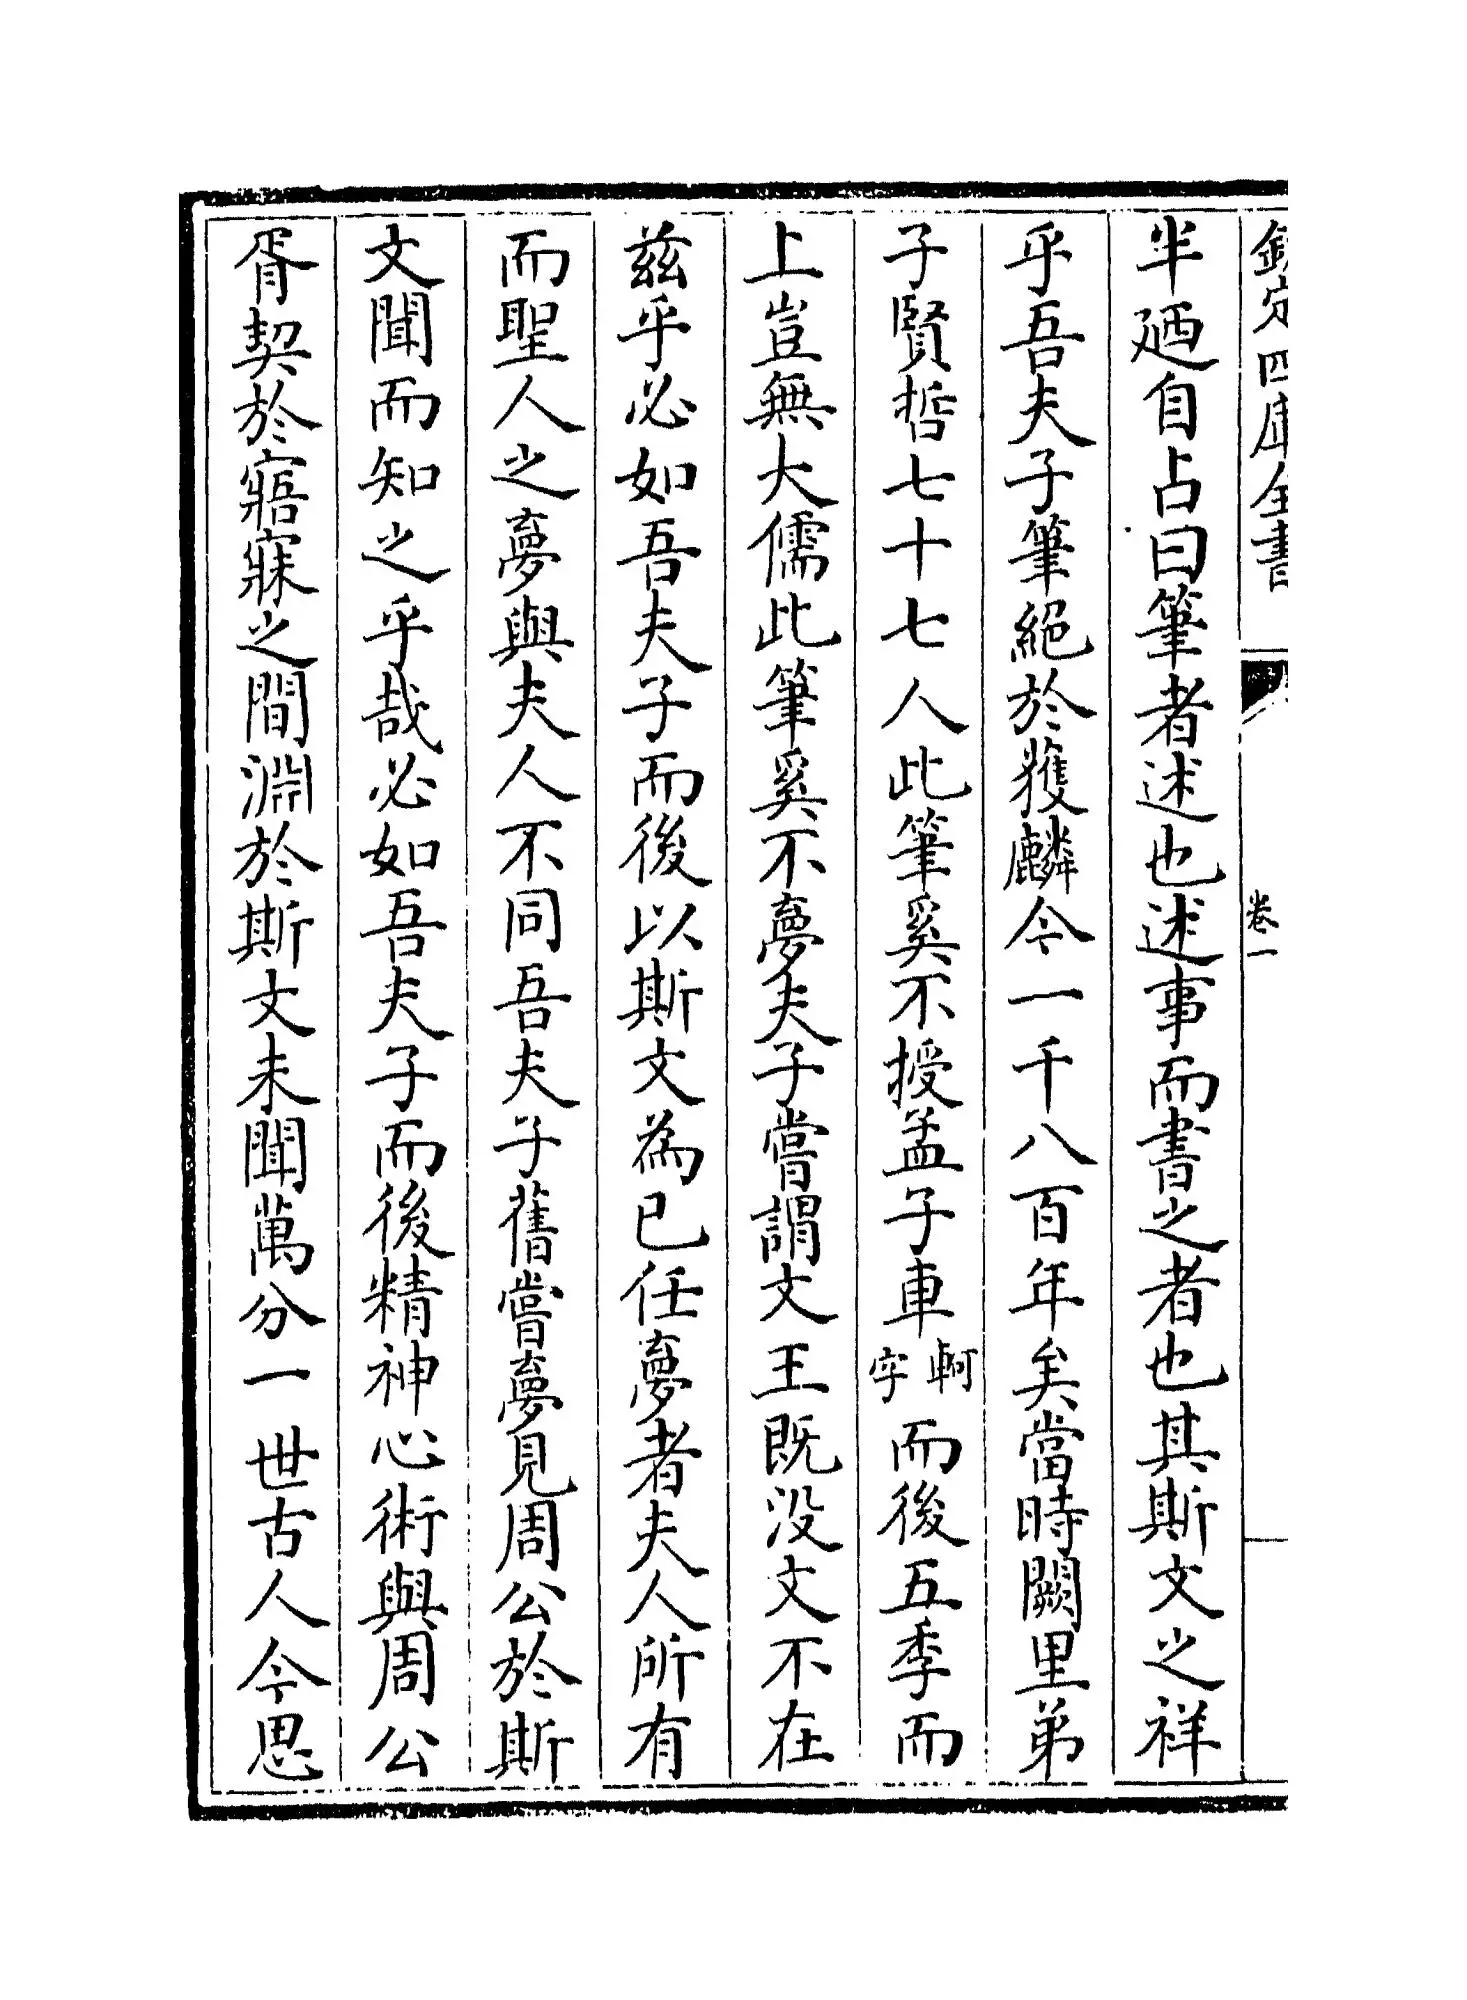 欽定四庫全書
卷一
半廼自占曰筆者述也述事而書之者也其斯文之祥
乎吾夫子筆絕於獲麟今一千八百年矣當時闕里弟
子賢哲七十七人此筆奚不授孟子車軻字而後五季而
上豈無大儒此筆奚不夢夫子嘗謂文王既没文不在
兹乎必如吾夫子而後以斯文為已任夢者夫人所有
而聖人之夢與夫人不同吾夫子舊嘗夢見周公於斯
文聞而知之乎哉必如吾夫子而後精神心術與周公
胥契於寤寐之間淵於斯文未聞萬分一世古人今思